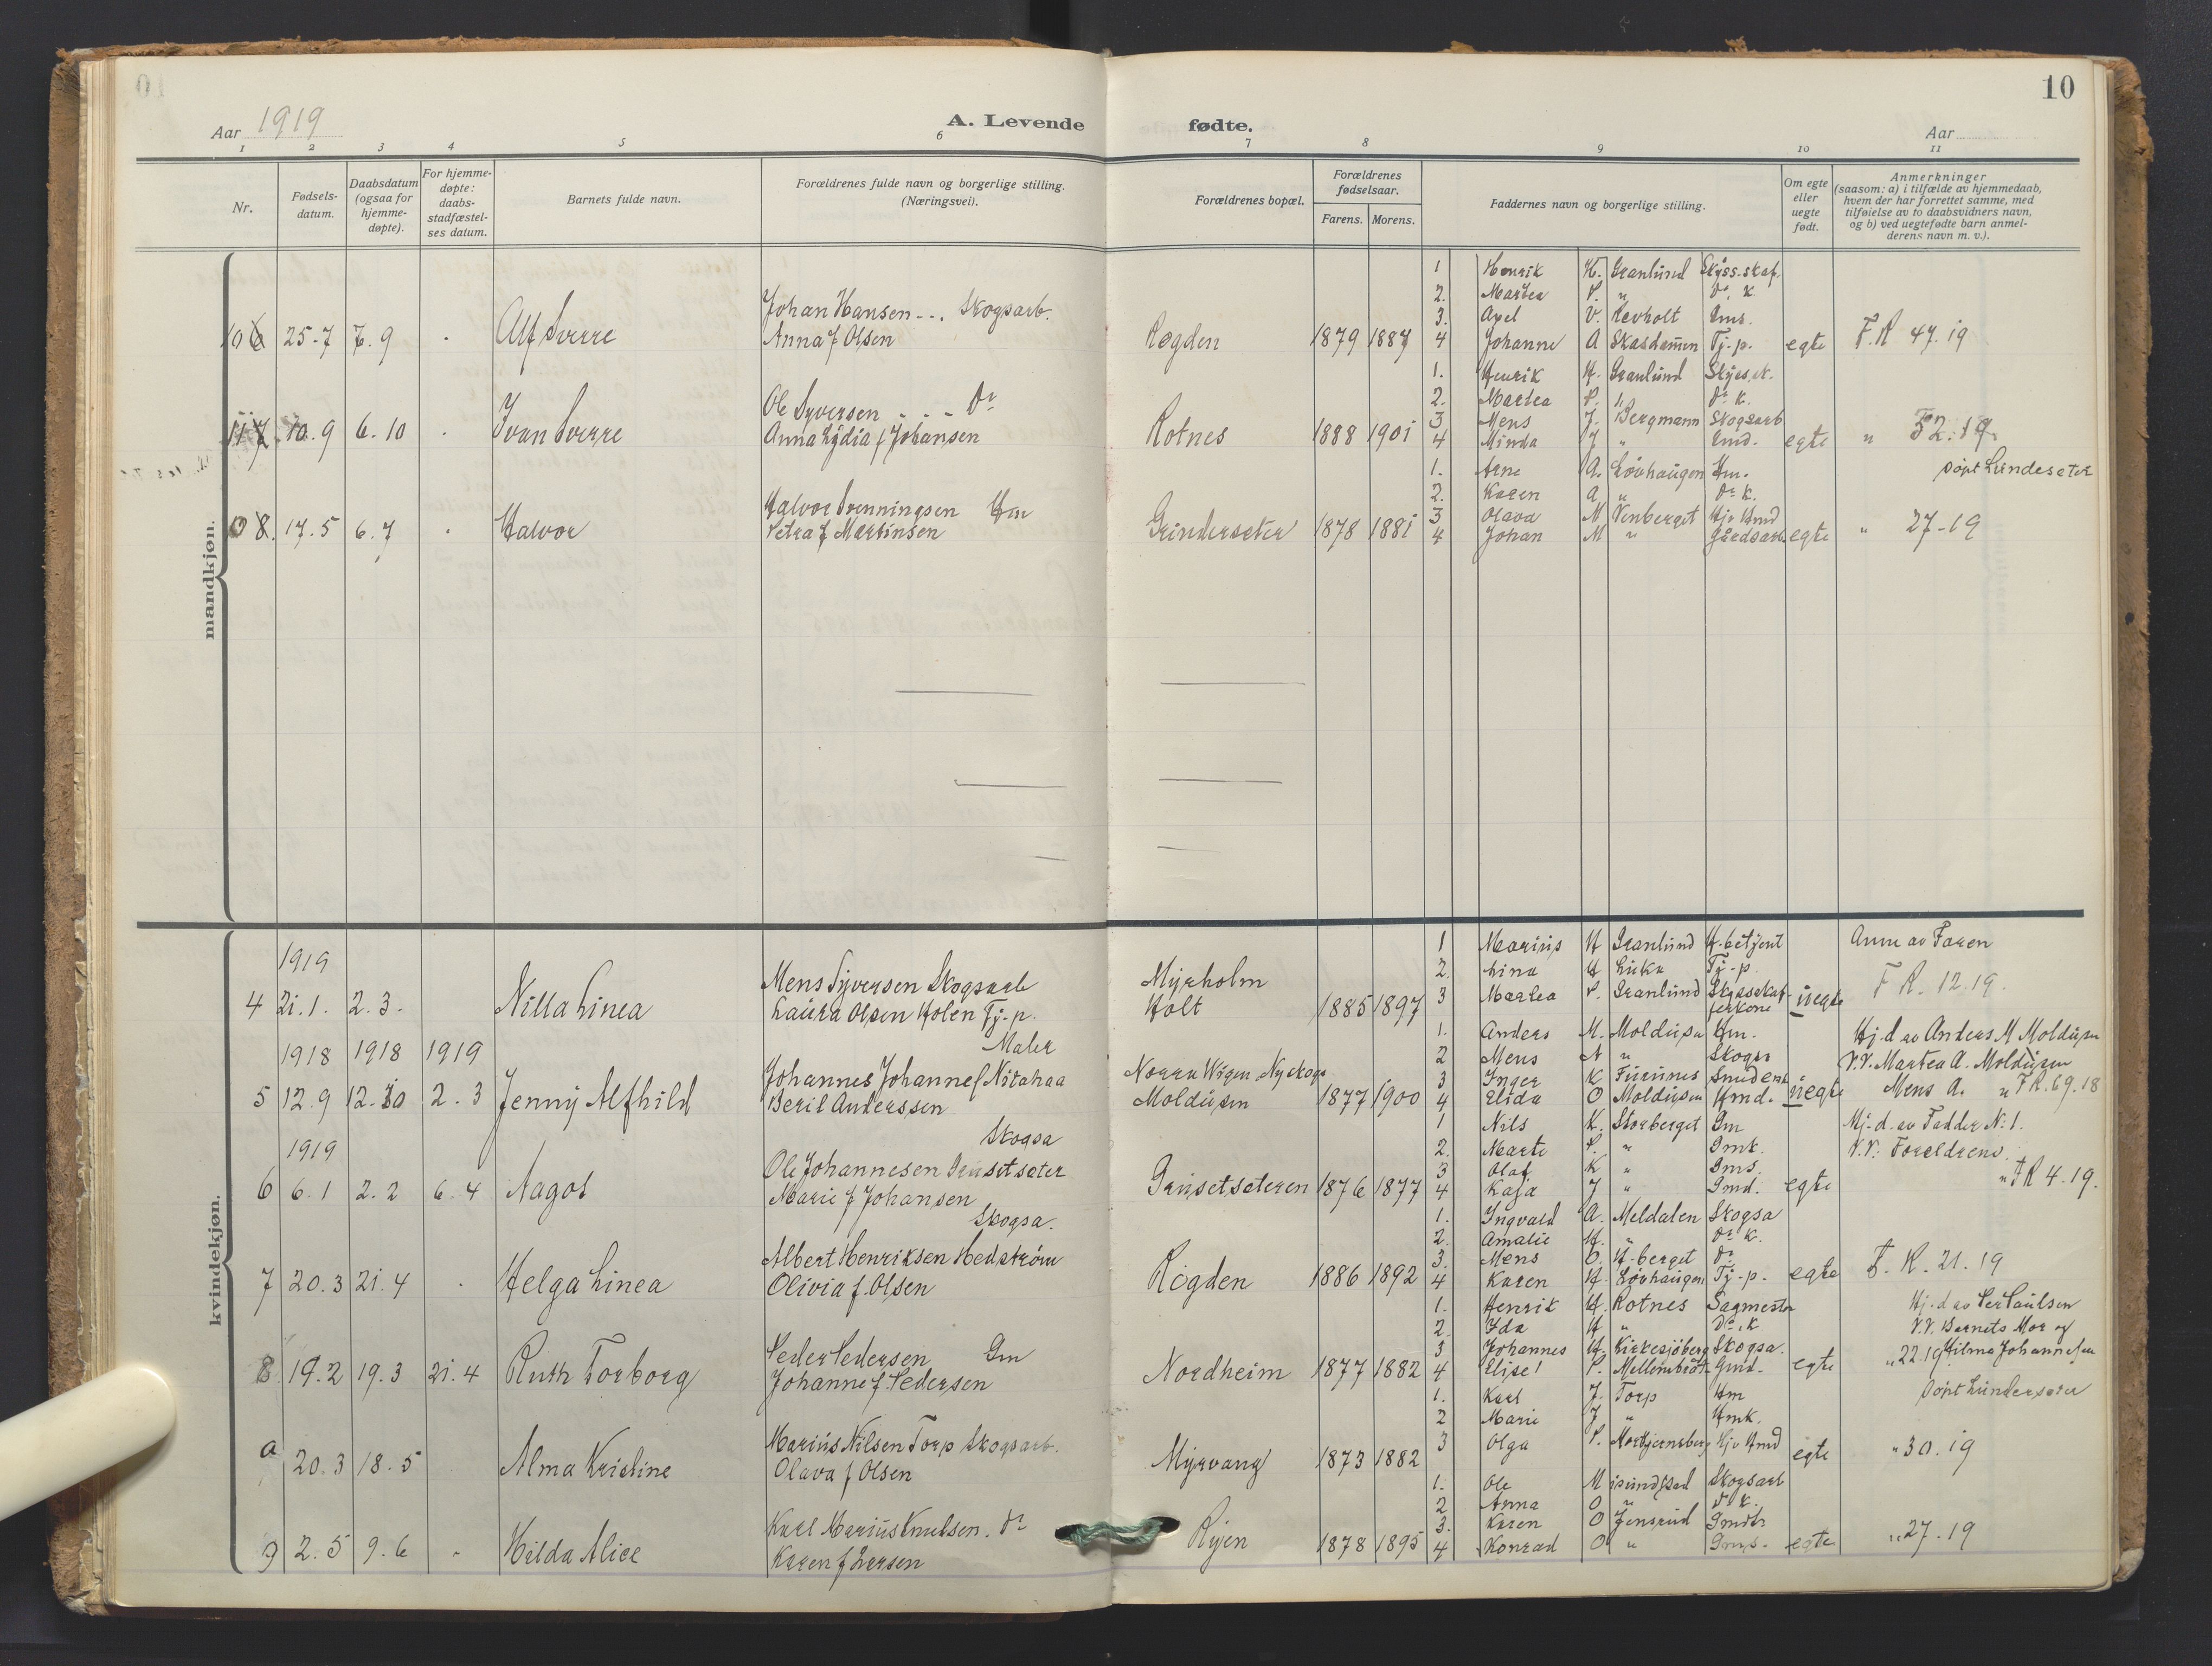 10
Aar 1919
A. Levende fødte.
Aar
1 2 3 4 5 6 7 8 9 10 11
Nr.
Fødselsdatum.
Daabsdatum (ogsaa for hjemmedøpte).
For hjemmedøpte: daabsstadfæstelses datum.
Barnets fulde navn.
Forældrenes fulde navn og borgerlige stilling. (Næringsvei).
Forældrenes bopæl.
Forældrenes fødselsaar.
Farens. Morens.
Faddernes navn og borgerlige stilling.
Om egte eller uegte født.
Anmerkninger (saasom: a) i tilfælde av hjemmedaab, hvem der har forrettet samme, med tilføielse av to daabsvidners navn, og b) ved uegtefødte barn anmelderens navn m. v.).
mandkjøn.
10 25-7 7.9 Alf Sverre
Johan Hansen - - . Skogsarb.
Anna f Olsen
Rogden 1879 1887
1 Henrik H. Granlund Skyss.skaf.
2. Martea P. " Do. K
3. Axel V. Revholt Gms.
4 Johanne A Skasdammen Tj.-p.
egte F.R 47.19
11 10.9 6.10 Ivan Sverre
Ole Syversen - - - Do
Anna Lydia f Johansen
Rotnes 1888 1901
1. Henrik H. Granlund Skyss.sk.
2. Martea P. " Do K.
3 Mens J. Bergmann Skogsarb
4 Minda J " Gmd.
egte " 52.19
døpt Lundeseter
8. 17.5 6.7 Halvor
Halvor Svenningsen Hm
Petra f Martinsen
Grinderseter 1878 1881
1. Arne A. Løvhaugen Hm.
2. Karen A. " Do K.
3 Olava M Venberget Hjv Hmd
4 Johan M " Gårdsarb
egte " 27-19
kvindekjøn.
1919
4 21.1. 2.3. Nilla Linea
Mens Syversen Skogsarb
Laura Olsen Holen Tj.-p.
Myrholm
Holt 1885 1897
1 Marius H Granlund H.betjent
2. Lina H Luka Tj-p.
3 Martea P. Granlund Skyssskafferkone
uegte
Anm av Faren
F R. 12.19.
1918 1918 1919
5 12.9 12.10 2.3 Jenny Alfhild
Maler
Johannes Johannes Nitahaa
Beril Anderssen
Norra Wigen Nyskoga
Moldusen 1877 1900
1. Anders M. Moldusen Hm.
2 Mens A " Skogsa
3 Inger K Furunes
4 Elida O Moldusen Hmd.
uegte
Hj.d av Anders M Moldusen
V.V. Martea A. Moldusen
Mens A. " F R.69.18
1919
6 6.1 2.2 6.4 Aagot
Skogsa
Ole Johannesen Grusetseter
Marie f Johansen
Grusetseteren 1876 1877
1 Nils K. Storberget Gm
2. Marte P. " Gmk.
3 Olaf K " Gms.
4 Kaja J " Gmd.
egte
Hj-d. av Fadder N: 1.
V.V. Foreldrene.
" F R 4.19.
7 20.3 21.4 Helga Linea
Skogsa.
Albert Henriksen Hedstrøm
Olivia f. Olsen
Rogden 1886 1892
1. Ingvald A. Meldalen Skogsa
2. Amalie H. " Do K.
3. Mens O. H-berget Do
4 Karen H. Løvhaugen Tj-p.
egte F. R. 21.19
8 19.2 19.3 21.4 Ruth Torborg
Peder Pedersen Gm
Johanne f Pedersen
Nordheim 1877 1882
1. Henrik H. Rotnes Sagmester
2. Ida H " Do. K
3 Johannes H. Kirkesjöberg Skogsa.
4 Elise P. Mellembråt Gmd.
egte
Hj.d av Per Paulsen
V.V. Barnets Mor og
" 22.19 Hilma Johannesen
20.3 18.5 Alma Kristine
Marius Nilsen Torp Skogsarb.
Olava f Olsen
Myrvang 1873 1882
1. Karl J. Torp Hm
2 Marie J " Hmk.
3 Olga P. Morkjernsberg Hjv Hmd
egte
døpt Lunderseter
" 30.19
9 2.5 9.6 Hilda Alice
Karl Marius Knutsen. Do
Karen f Larsen
Ryen 1878 1895
1. Ole M Skogsarb
2 Anna O " Do K.
3. Karen O Jensrud
4 Konrad O " Gms.
egte " 27.19